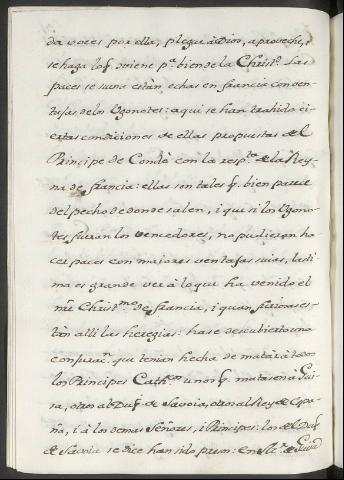 da voces por ella, plegue à Dios, aproveche,
se haga lo q̃ viene pª bien de la Christᵈ. Las
paces se suena están echas en francia con ven-
tajas de los Ugonotes: aqui se han trahido ci-
ertas condiciones de ellas propuestas del
Principe de Condè con la respᵗᵃ de la Rey-
na de francia: ellas son tales q̃ bien parece
del pecho de donde salen, i que si los Ugono-
tes fueran los vencedores, no pudieran ha-
cer paces con maiores ventajas suias, lasti-
ma es grande ver à lo que ha venido el
Christᵐᵒ de francia, i quan furiosas es-
tàn alli las heregias: hase descubierto una
conjuracⁿ. que tenian hecha de matàr à todos
los Principes Cathᶜᵒˢ unos q̃ matasen à Gui-
sa, otros al Duq̃. de Savoia, otros al Rey de Espa-
ña, i à los demas Señores, i Principes: los del Duq̃
de Savoia se dice han sido presos: en